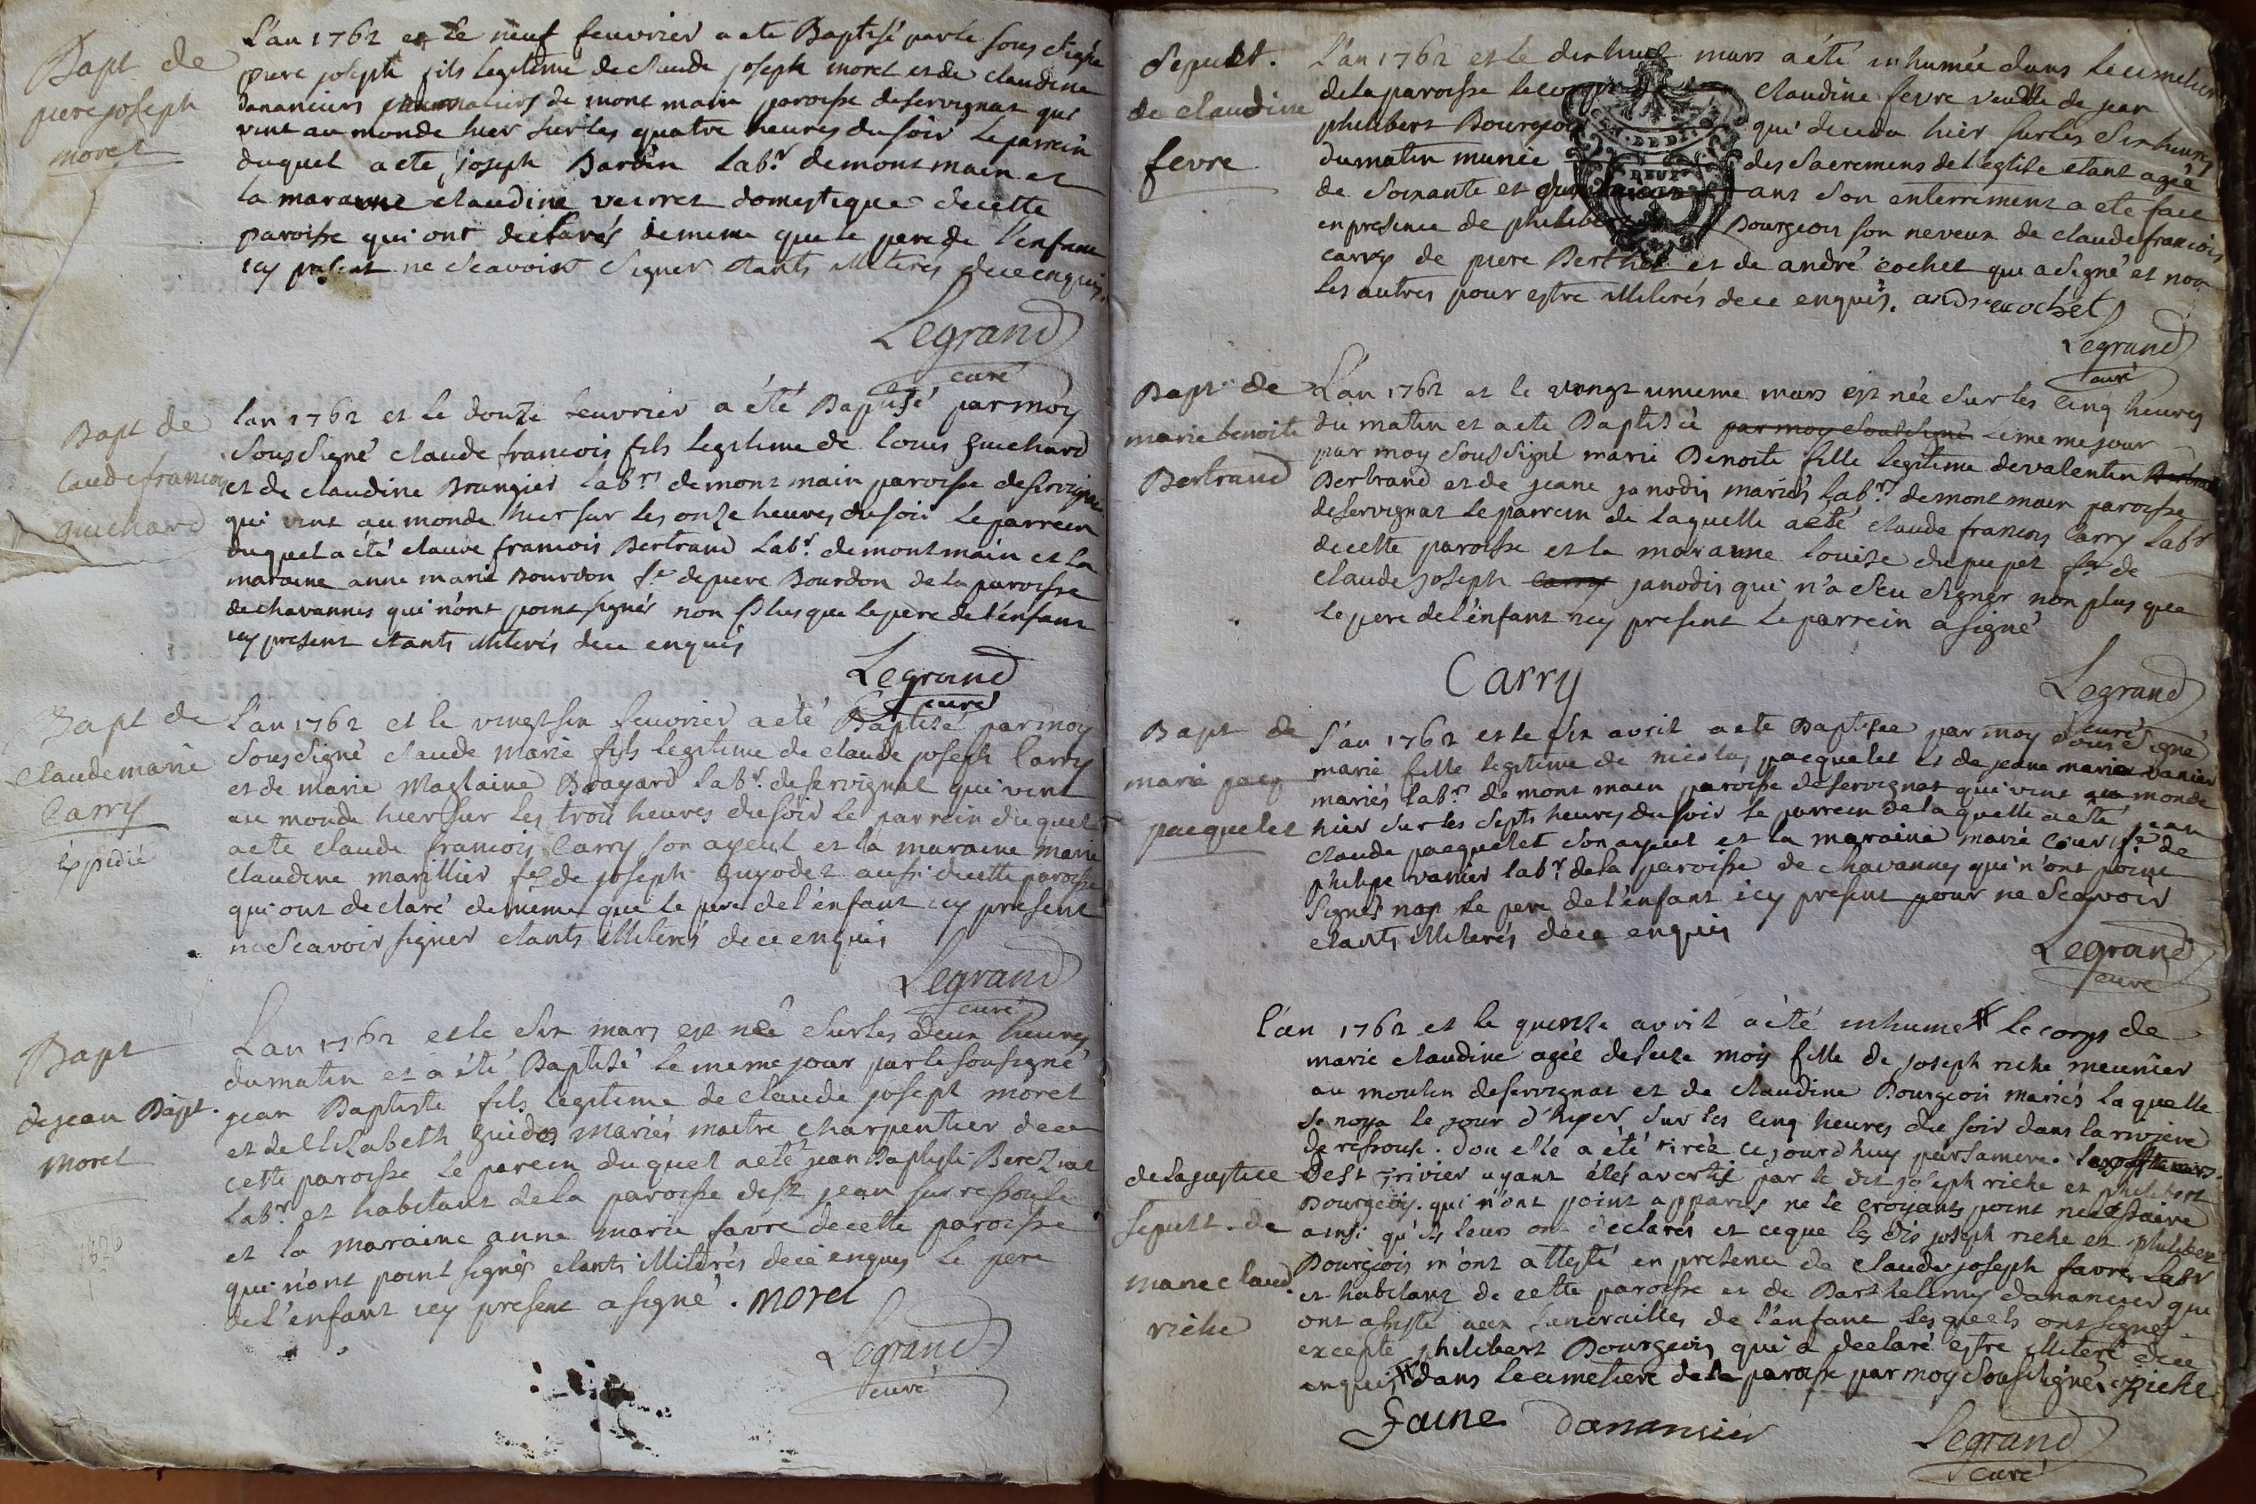 Bapt de
piere joseph
morel
L'an 1762 et le neuf feuvrier a ete Baptisé par le sousigné
piere joseph fils legitime de claude joseph morel et de claudine
Dananciers de mont main paroisse deservignat qui
vint au monde hier sur les quatre heures du soir le parrein
duquel a ete joseph Bardin labr demontmain et
la maraine claudine veirret domestique decette
paroisse qui ont declarés dememe que le pere de l'enfant
icy present ne scavoir signer etants illiterés dece enquis.
Legrand
curé
Bapt de
Claude francois
guichard
lan 1762 et le douze feuvrier a été Baptisé par moy
Soussigné claude francois fils legitime de louis guichard
et de claudine Brungier labrs demont main paroisse deservignat
qui vint au monde hier sur les onze heures du soir le parrein
duquel a été claude francois Bertrand labr. demontmain et la
maraine anne marie Bourdon fe depiere Bourdon de la paroisse
de chavannes qui n'ont point signés non plus que le pere de l'enfant
icy present etants illiterés dece enquis
Legrand
curé
Bapt de
Claude marie
Carry
expedié
L'an 1762 et le vingt six feuvrier a été Baptisé par moy
Soussigné claude marie fils legitime de claude joseph Carry
et de marie Maglaine Brayard labr. deservignat qui vint
au monde hier sur les trois heures du soir le parrein duquel
a ete claude francois Carry son ayeul et la maraine marie
claudine marillier fe de joseph guyodet aussi decette paroisse
qui ont declaré dememe que le pere de l'enfant icy present
ne scavoir signer etants illiterés dece enquis
Legrand
curé
Bapt
de jean Bapt.
morel
Lan 1762 et le six mars est née sur les deux heures
dumatin et a été Baptisé le meme jour par le sousigné
jean Baptiste fils legitime de claude joseph morel
et de Elizabeth guidos mariés maitre charpentier dece
cette paroisse le parein duquel a eté jean Baptiste
labr. et habitant de la paroisse de st jean sur ressouse
et la maraine anne marie favre decette paroisse
qui n'ont point signés etants illiterés dece enquis le pere
de l'enfant icy present a signé. morel
Legrand
curé
Sepult.
de claudine
fevre
L'an 1762 et le dix huit mars a été inhumée dans le cimetiere
dela paroisse le corps de claudine fevre veuve de jean
philibert Bourgeois qui deceda hier sur les six heures
dumatin munie des sacremens de l'eglise etant agée
de soixante et ans son enterrement a ete fait
en presence de philibert Bourgeois son neveux de claude francois
carry de piere Berthet et de andré cochet qui a signé et non
les autres pour estre illiterés dece enquis. andre cochet
Legrand
curé
Bapt de
marie benoite
Bertrand
L'an 1762 et le vingt unieme mars est née sur les cinq heures
du matin et a ete Baptisée par moy soussigné le meme jour
par moy soussigné marie Benoite fille legitime devalentin Bertrand
Bertrand et de jeane janodis mariés labrs demont main paroisse
deservignat le parrein de laquelle a eté claude francois Carry labr
decette paroisse et la maraine louise dupupet fe de
claude joseph Carry janodis qui n'a sçu signer non plus que
le pere de l'enfant icy present le parrein a signé
Carry
Legrand
curé
Bapt de
marie jacq
pacquelet
L'an 1762 et le six avril a ete Baptisee par moy soussigné
marie fille legitime de nicolas pacquelet et de jeane marie vanier
mariés labrs. de mont main paroisse deservignat qui vint au monde
hier sur les septs heures du soir le parrein de laquelle a été jean
claude pacquelet son ayeul et la maraine marie Cour fe de
philipe vanier labr dela paroisse de chavannes qui n'ont point
signés non le pere de l'enfant icy present pour ne scavoir
etants illiterés dece enquis
Legrand
curé
de la justice
sepult. de
marie claud.
riche
l'an 1762 et le quinze avril a été inhumé # le corps de
marie claudine agée deseize mois fille de joseph riche meunier
au moulin deservignat et de claudine Bourgeois mariés la quelle
se noya le jour d'hyer sur les cinq heures du soir dans la riviere
de ressouse. d'ou elle a été tirée ce jourd'huy par sa mere. les officiers
de st Trivier ayant étés avertis par le dit joseph riche et philibert
Bourgeois. qui n'ont point apparus ne le croyants point necessaire
ainsi qu'ils leurs ont declarés et ceque les dis joseph riche et philibert
Bourgeois m'ont attesté en presence de claude joseph favre labr
et habitant de cette paroisse et de Barthelemy dananciér qui
ont assisté aux funerailles de l'enfant lesquels ont signés
excepté philibert Bourgeois qui a declaré estre illiteré dece
enquis # dans le cimetiere de la paroisse par moy soussigné. riche
faure dananciér
Legrand
curé